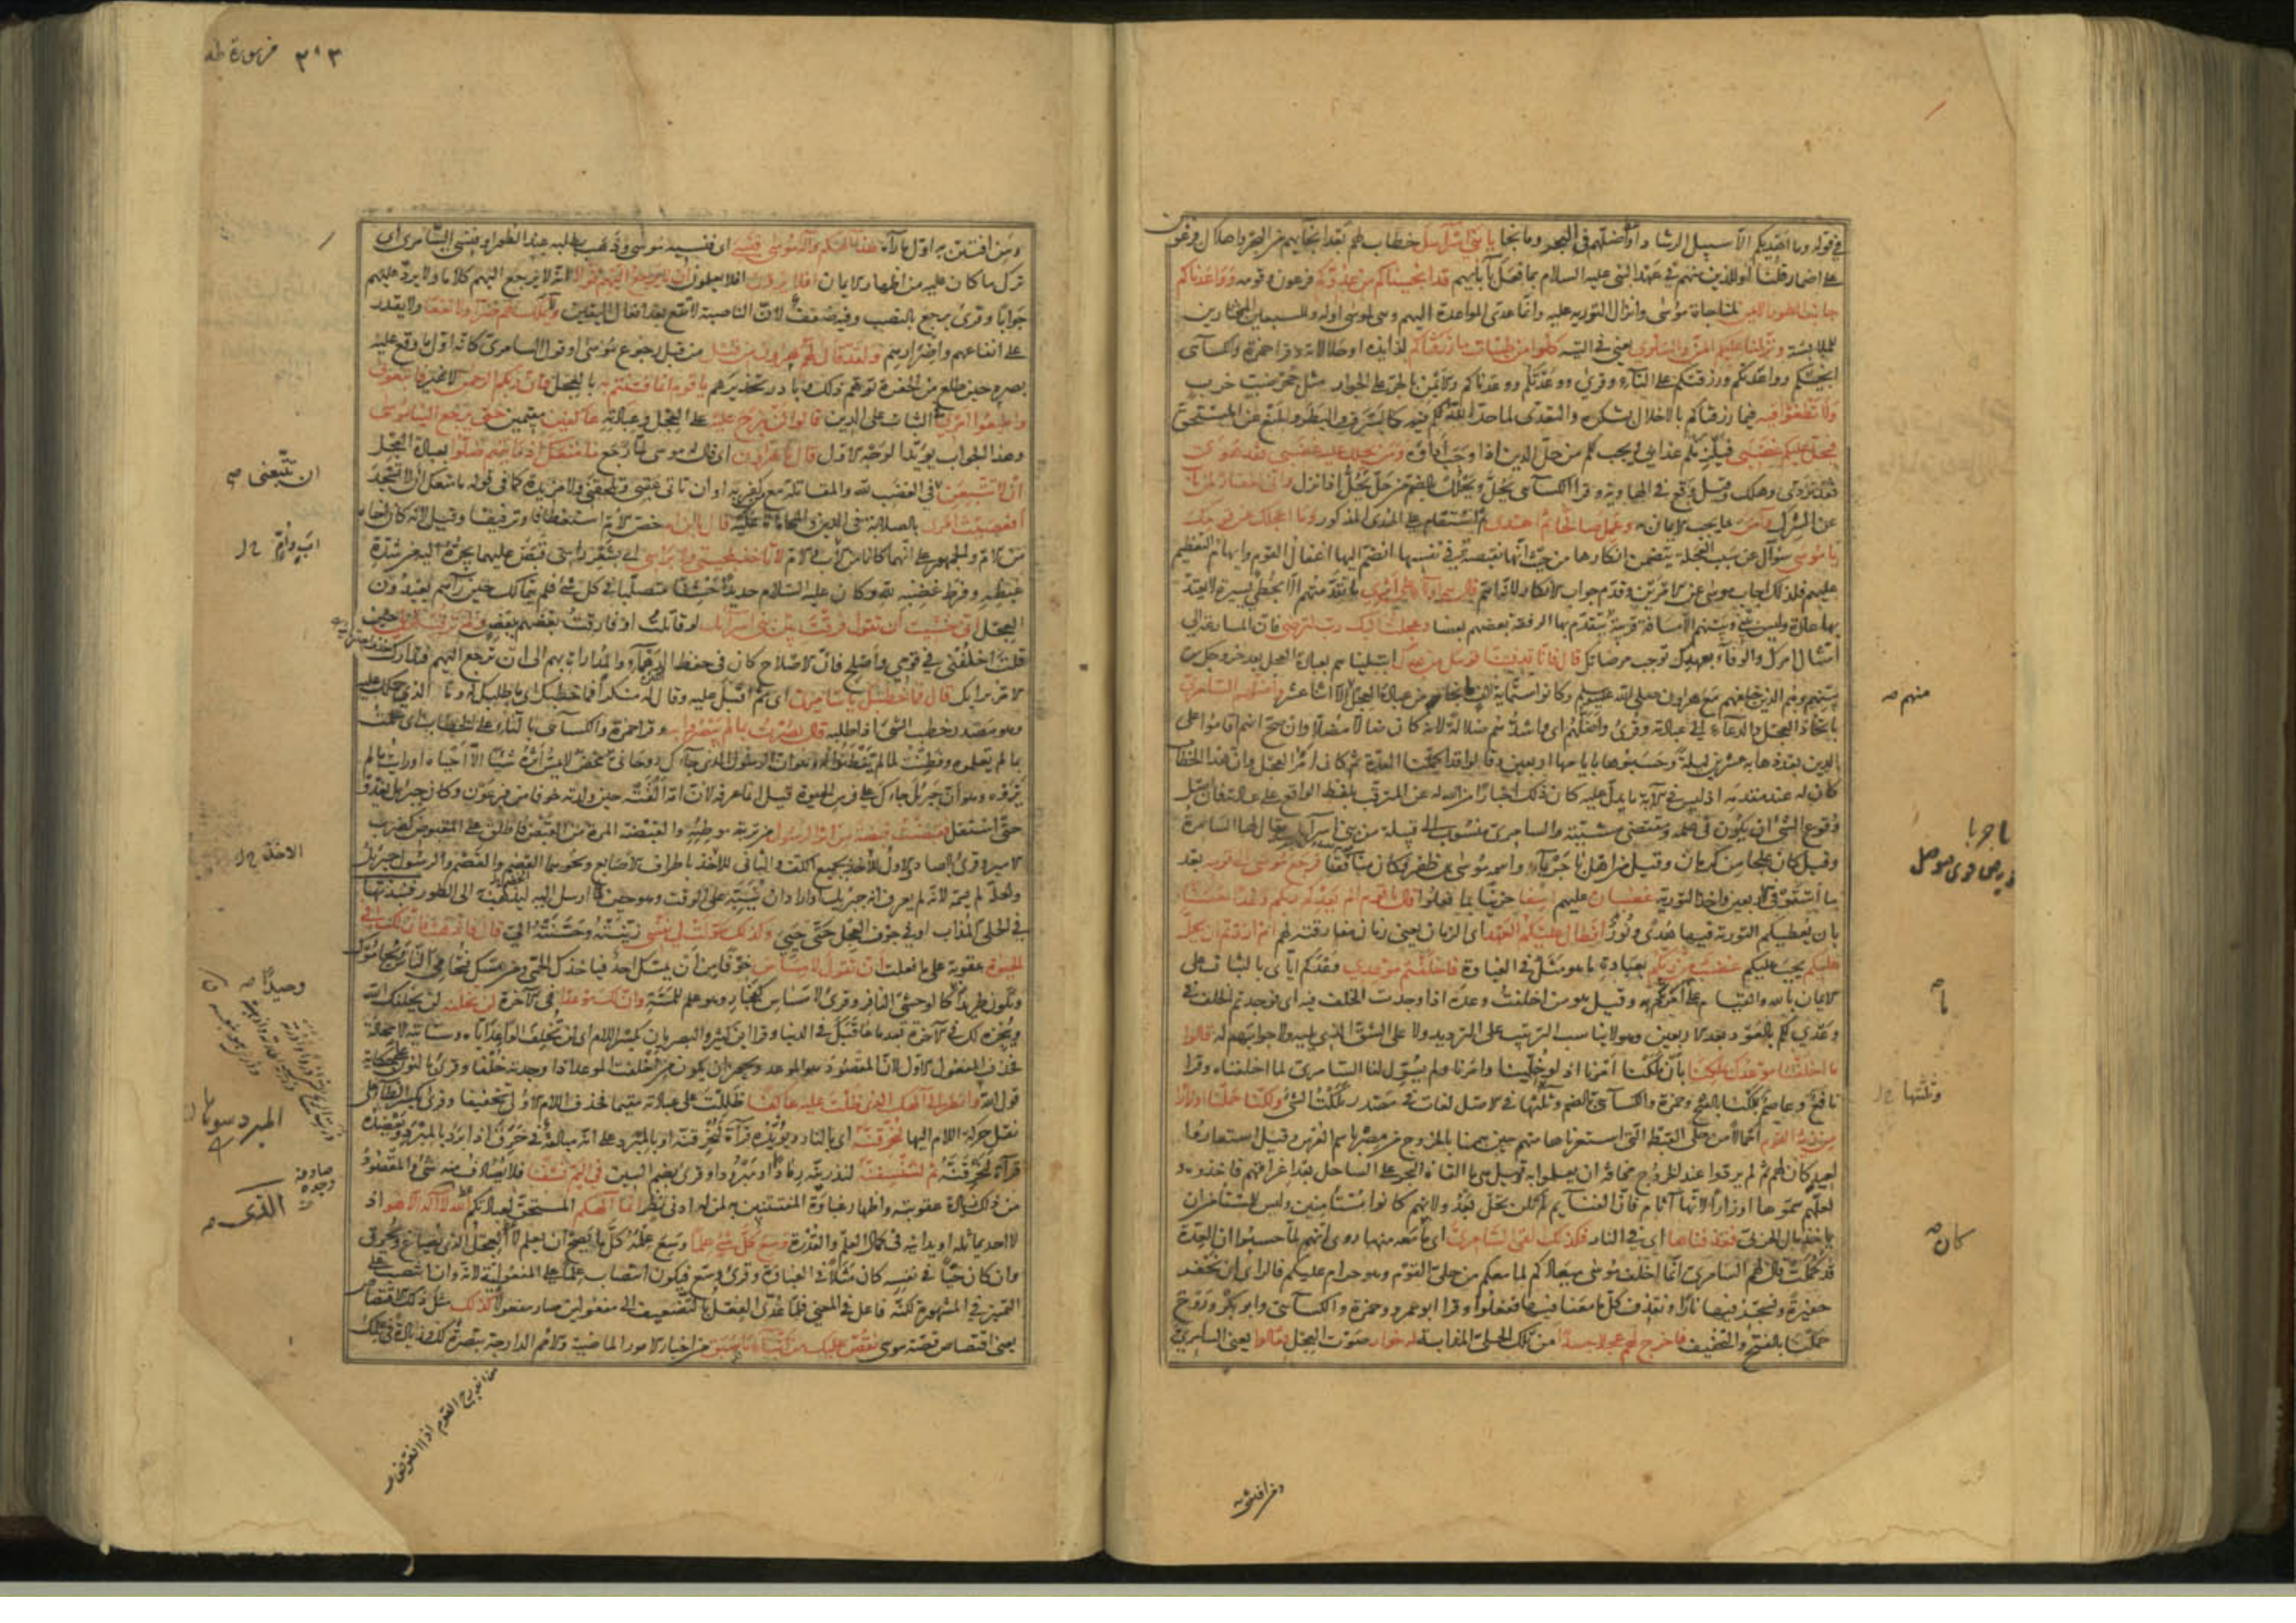 في قوله وما اهديكم الا سبيل الرشاد او اضلهم في البحر وما نجا يا بني اسرائيل خطاب لهم بعد انجائهم من البحر واهلاك فرعون
على اضمار قلنا او للذين منهم في عهد النبي عليه السلام بما فعل بآبائهم قد انجيناكم من عدوكم فرعون وقومه وواعدناكم
جانب الطور الايمن لمناجاة موسى وانزال التورية عليه وانما عدى المواعدة اليهم وهي لموسى او له وللسبعين المختارين
للملابسة ونزلنا عليكم المن والسلوى يعني في التيه كلوا من طيبات ما رزقناكم لذايذه او حلالاته وقرا حمزة والكسائي
انجيتكم وواعدتكم ورزقتكم على التاء وقرئ ووعدتكم ووعدناكم والايمن بالجر على الجوار مثل جحر ضب خرب
ولا تطغوا فيه فيما رزقناكم بالاخلال بشكره والتعدي لما حد الله لكم فيه كالسرف والبطر والمنع عن المستحق
فيحل عليكم غضبي فيلزمكم عذابي ويجب لكم من حل الدين اذا وجب اداؤه ومن يحلل عليه غضبي فقد هوى
فقد تردى وهلك وقيل وقع في الهاوية وقرا الكسائي يحل ويحلل بالضم من حل يحل اذا نزل واني لغفار لمن تاب
عن الشرك وآمن بما يجب الايمان به وعمل صالحا ثم اهتدى ثم استقام على الهدى المذكور وما اعجلك عن قومك
يا موسى سؤال عن سبب العجلة يتضمن انكارها من حيث انها نقيصة في نفسها انضم اليها اغفال القوم وايهام التعظيم
عليهم فلذلك اجاب موسى عن الامرين وقدم جواب الانكار لانه اهم قال هم اولاء على اثري ما تقدمتهم الا بخطى يسيرة لا يعتد
بها عادة وليس بيني وبينهم الا مسافة قريبة يتقدم بها الرفقة بعضهم بعضا وعجلت اليك رب لترضى فان المسارعة الى
امتثال امرك والوفاء بعهدك توجب مرضاتك قال فانا قد فتنا قومك من بعدك ابتليناهم بعبادة العجل بعد خروجك من
بينهم وهم الذين خلفهم مع هارون وكانوا ستماية الف ما نجا من عبادة العجل الا اثنا عشر الفا واضلهم السامري
باتخاذ العجل والدعاء الى عبادته وقرئ واضلهم اي اشدهم ضلالة لانه كان ضالا مضلا وان صح انهم اقاموا على
الدين بعد ذهابه عشرين ليلة وحسبوها بايامها اربعين وقالوا قد اكملنا العدة ثم كان امر العجل وان هذا الخطاب
كان له عند مقدمه اذ ليس في الآية ما يدل عليه كان ذلك اخبارا من الله له عن المترقب بلفظ الواقع على عادته فان اصل
وقوع الشئ ان يكون في علمه ومقتضى مشيته والسامري منسوب الى قبيلة من بني اسرائيل يقال لها السامرة
وقيل كان علجا من كرمان وقيل من اهل باجرما واسمه موسى بن ظفر وكان منافقا فرجع موسى الى قومه بعد
ما استوفى الاربعين واخذ التورية غضبان عليهم اسفا حزينا بما فعلوا قال يا قوم الم يعدكم ربكم وعدا حسنا
بان يعطيكم التورية فيها هدى ونور افطال عليكم العهد اي الزمان يعني زمان مفارقته لهم ام اردتم ان يحل
عليكم يجب عليكم غضب من ربكم بعبادة ما هو مثل في الغباوة فاخلفتم موعدي وعدكم اياي بالثبات على
الايمان بالله والقيام على ما امرتكم به وقيل هو من اخلفت وعده اذا وجدت الخلف فيه اي فوجدتم الخلف في
وعدي لكم بالعود بعد الاربعين وهو لا يناسب الترتيب على الترديد ولا على الشق الذي يليه ولا جوابهم له قالوا
ما اخلفنا موعدك بملكنا بان ملكنا امرنا اذ لو خلينا وامرنا ولم يسول لنا السامري لما اخلفناه وقرا
نافع وعاصم بملكنا بالفتح وحمزة والكسائي بالضم وثلثها في الاصل لغات في مصدر ملكت الشئ ولكنا حملنا اوزارا
من زينة القوم احمالا من حلي القبط التي استعرناها منهم حين هممنا بالخروج من مصر باسم العرس وقيل استعاروا
لعيد كان لهم ثم لم يردوا عند الخروج مخافة ان يعلموا به وقيل هي ما القاه البحر على الساحل بعد اغراقهم فاخذوه و
لعلهم سموها اوزارا لانها آثام فان الغنايم لم تكن تحل بعد ولانهم كانوا مستأمنين وليس للمستأمن ان
ياخذ مال الحربي فقذفناها اي في النار فكذلك القى السامري اي ما معه منها روي انهم لما حسبوا ان العدة
قد كملت قال لهم السامري انما اخلف موسى ميعادكم لما معكم من حلي القوم وهو حرام عليكم فالرأي ان نحفر
حفيرة ونسجر فيها نارا ونقذف كل ما معنا فيها ففعلوا وقرا ابو عمرو وحمزة والكسائي وابو بكر وروح
حملنا بالفتح والتخفيف فاخرج لهم عجلا جسدا من تلك الحلي المذابة له خوار صوت العجل فقالوا يعني السامري
منهم صح
باجرما
قرية من قرى موصل
وثلثها
كان صح
ومن افتتن
٣٨٣ من سورة طه
ومن افتتن به اول ما رآه هذا الهكم واله موسى فنسي اي فنسيه موسى وذهب يطلبه عند الطور او فنسي السامري اي
ترك ما كان عليه من اظهار الايمان افلا يرون افلا يعلمون ان لا يرجع اليهم قولا انه لا يرجع اليهم كلاما ولا يرد عليهم
جوابا وقرئ يرجع بالنصب وفيه ضعف لان ان الناصبة لا تقع بعد افعال اليقين ولا يملك لهم ضرا ولا نفعا ولا يقدر
على انفاعهم واضرارهم ولقد قال لهم هرون من قبل من قبل رجوع موسى او قول السامري كانه اول ما وقع عليه
بصره حين طلع من الحفرة توهم ذلك وبادر تحذيرهم يا قوم انما فتنتم به بالعجل وان ربكم الرحمن لا غير فاتبعوني
واطيعوا امري في الثبات على الدين قالوا لن نبرح عليه على العجل وعبادته عاكفين مقيمين حتى يرجع الينا موسى
وهذا الجواب يؤيد الوجه الاول قال يا هرون اي قال له موسى لما رجع ما منعك اذ رايتهم ضلوا بعبادة العجل
ان لا تتبعن في الغضب لله والمقاتلة مع من كفر به او ان تاتي عقبي وتلحقني ولا مزيدة كما في قوله ما منعك ان لا تسجد
افعصيت امري بالصلابة في الدين والمحاماة عليه قال يا ابن ام خص الام استعطافا وترقيقا وقيل لانه كان اخاه
من الام والجمهور على انهما كانا من اب وام لا تاخذ بلحيتي ولا براسي اي بشعر راسي قبض عليهما يجره اليه من شدة
غيظه وفرط غضبه لله وكان عليه السلام حديدا خشنا متصلبا في كل شئ فلم يتمالك حين رآهم يعبدون
العجل اني خشيت ان تقول فرقت بين بني اسرائيل لو قاتلت او فارقت بعضهم ببعض ولم ترقب قولي حين
قلت اخلفني في قومي واصلح فان الاصلاح كان في حفظ الدهماء والمداراة بهم الى ان ترجع اليهم فتدارك
الامر برايك قال فما خطبك يا سامري اي ثم اقبل عليه وقال له منكرا ما خطبك اي ما طلبك له وما الذي حملك عليه
وهو مصدر خطب الشئ اذا طلبه قال بصرت بما لم يبصروا به وقرا حمزة والكسائي بالتاء على الخطاب اي علمت
بما لم يعلموه وفطنت لما لم يفطنوا له وهو ان الرسول الذي جاءك روحاني محض لا يمس اثره شيئا الا احياه او رايت ما لم
يروه وهو ان جبريل جاءك على فرس الحيوة قيل انما عرفه لان امه القته حين ولدته خوفا من فرعون وكان جبريل يغذوه
حتى استقل فقبضت قبضة من اثر الرسول من تربة موطئه والقبضة المرة من القبض فاطلق على المقبوض كضرب
الامير وقرئ بالصاد والاول للاخذ بجميع الكف والثاني للاخذ باطراف الاصابع ونحوهما الخضم والقضم والرسول جبريل
ولعله لم يسمه لانه لم يعرف انه جبريل او اراد ان ينبه على الوقت وهو حين ارسل اليه ليذهب به الى الطور فنبذتها
في الحلي المذاب او في جوف العجل حتى حيي وكذلك سولت لي نفسي زينته وحسنته الي قال فاذهب فان لك في
الحيوة عقوبة على ما فعلت ان تقول لا مساس خوفا من ان يمسك احد فياخذك الحمى ومن مسك فتحامى الناس ويحاموك
وتكون طريدا كالوحشي النافر وقرئ لا مساس كفجار وهو علم للمسة وان لك موعدا في الآخرة لن تخلفه لن يخلفك الله
وينجزه لك في الآخرة بعد ما عاقبك في الدنيا وقرا ابن كثير والبصريان بكسر اللام اي لن تخلف الواعد اياه وستاتيه لا محالة
فحذف المفعول الاول لان المقصود هو الموعد ويجوز ان يكون من اخلفت الموعد اذا وجدته خلفا وقرئ بالنون على حكاية
قول الله وانظر الى الهك الذي ظلت عليه عاكفا ظللت على عبادته مقيما فحذف اللام الاولى تخفيفا وقرئ بكسر الظاء على
نقل حركة اللام اليها لنحرقنه اي بالنار ويؤيده قراءة لنحرقنه او بالمبرد على انه مبالغة في حرق اذا برد بالمبرد ويعضده
قراءة لنحرقنه ثم لننسفنه لنذرينه رمادا او مبرودا وقرئ بضم السين في اليم نسفا فلا يصادف منه شئ والمقصود
من ذلك زيادة عقوبته واظهار غباوة المفتتنين به لمن له ادنى نظر انما الهكم المستحق لعبادتكم الله الذي لا اله الا هو اذ
لا احد يماثله او يدانيه في كمال العلم والقدرة وسع كل شئ علما وسع علمه كل ما يصح ان يعلم لا العجل الذي يصاغ ويحرق
وان كان حيا في نفسه كان مثلا في الغباوة وقرئ وسع فيكون انتصاب علما على المفعولية لانه وان انتصب على
التمييز في المشهورة لكنه فاعل في المعنى فلما عدي الفعل بالتضعيف الى مفعولين صار مفعولا كذلك مثل ذلك الاقتصاص
يعني اقتصاص قصة موسى نقص عليك من انباء ما قد سبق من اخبار الامور الماضية والامم الدارجة تبصرة لك وزيادة في علمك
ان تتبعني صح
اب وام
الاخذ
وحيدا صح
المبرد سوهان
الذي صح